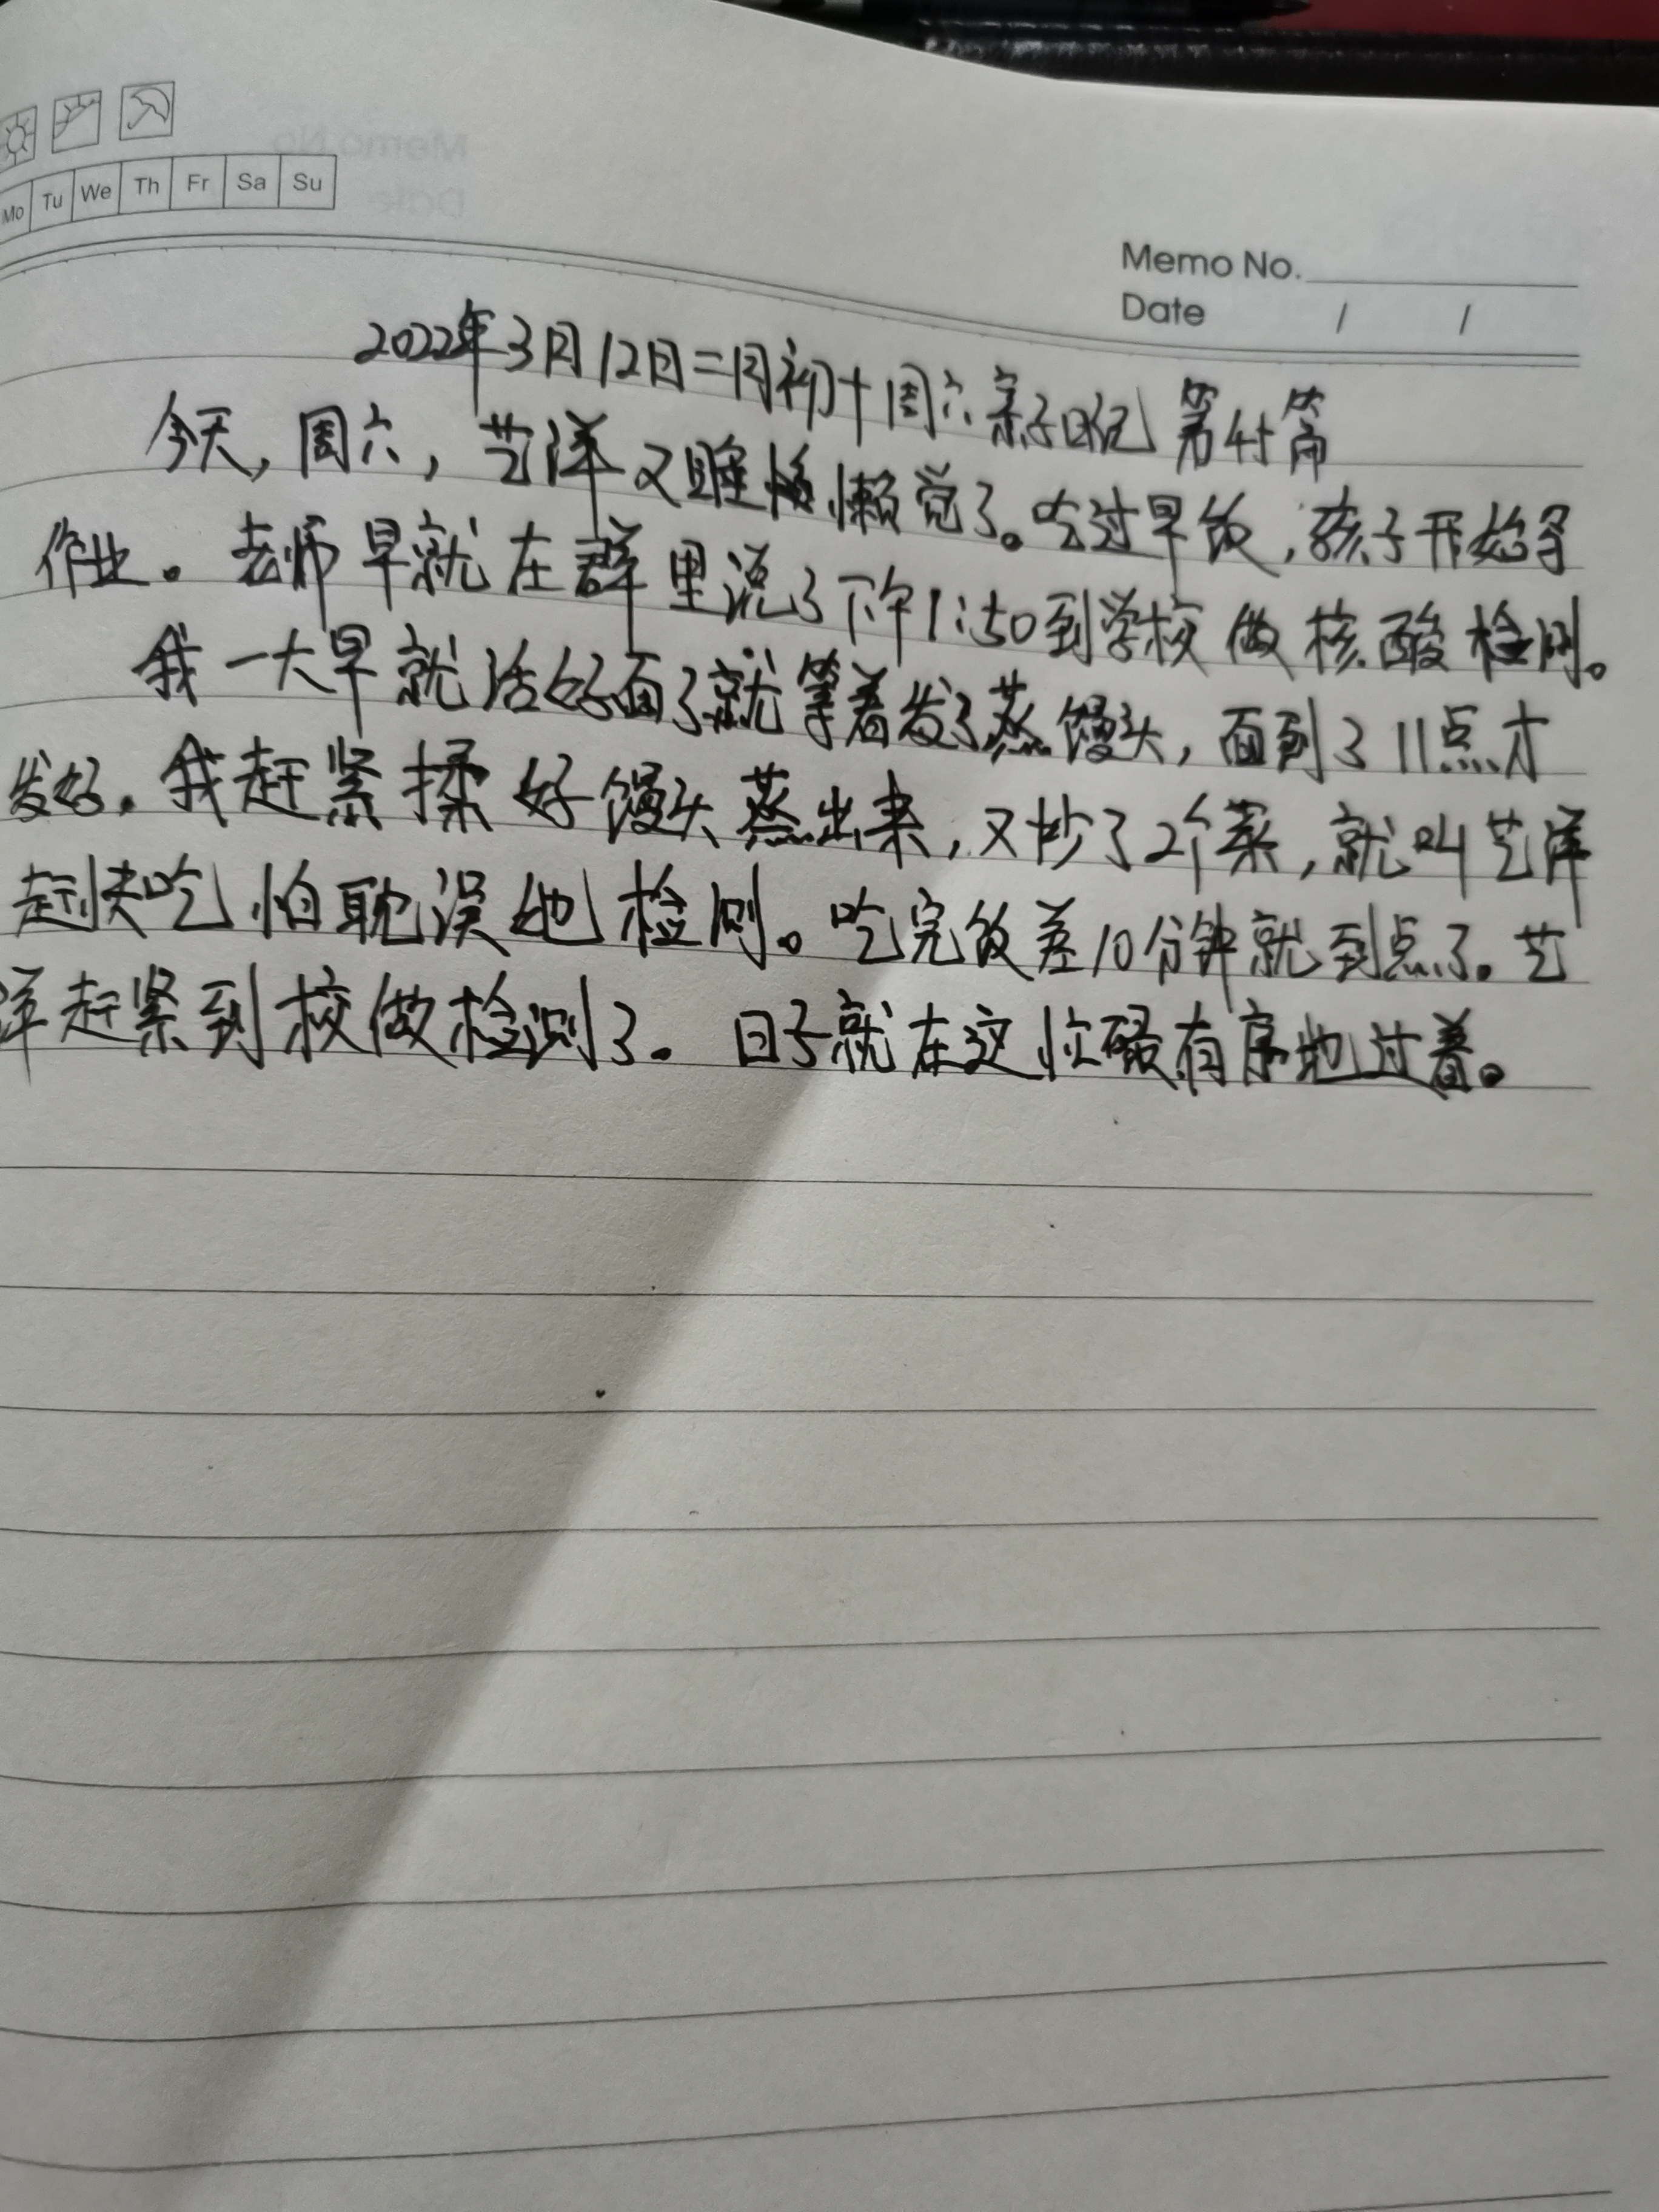 Mo Tu We Th Fr Sa Su
Memo No.
Date / /
2022年3月12日二月初十周六亲子日记 第4篇
今天,周六,艺洋又睡懒觉了。吃过早饭,孩子开始写
作业。老师早就在群里说了下午1:50到学校做核酸检测。
我一大早就活好面了就等着发了蒸馒头,面到了11点才
发好。我赶紧揉好馒头蒸出来,又炒了2个菜,就叫艺洋
赶快吃怕耽误他检测。吃完饭差10分钟就到点了。艺
洋赶紧到校做检测了。日子就在这忙碌有序地过着。